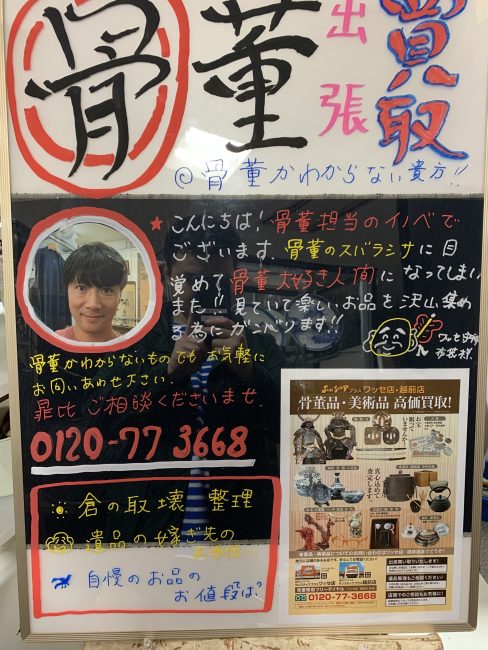 骨董
出張
買取
◎骨董かわからない貴方!!
★こんにちは!骨董担当のイノベで
ございます.骨董のスバラシサに目
覚めて骨董大好き人間になってしまい
また!!見ていて楽しいお品を沢山集め
る為にガンバリます!!
骨董かわからないものでもお気軽に
お問いあわせ下さい.
是比ご相談くださいませ.
0120-77 3668
倉の取壊 整理
遺品の嫁ぎ先の
自慢のお品の
お値段は?
プラス ワッセ店・越前店
骨董品・美術品 高価買取!
真心込めて
査定します。
出張買い取り致します!
店頭でのご相談もお気軽に!
0120-77-3668